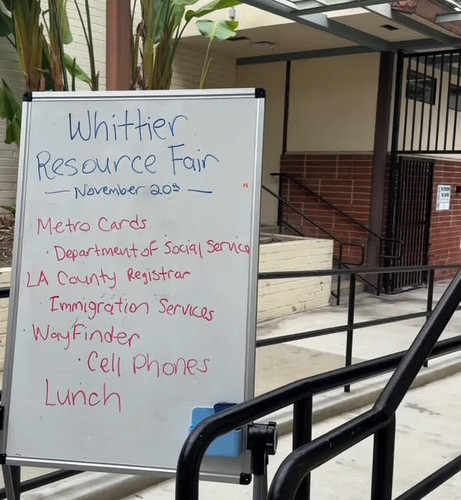 Whittier
Resource Fair
— November 20th —
Metro Cards
· Department of Social Service
LA County Registrar
Immigration Services
· Wayfinder
· Cell Phones
Lunch